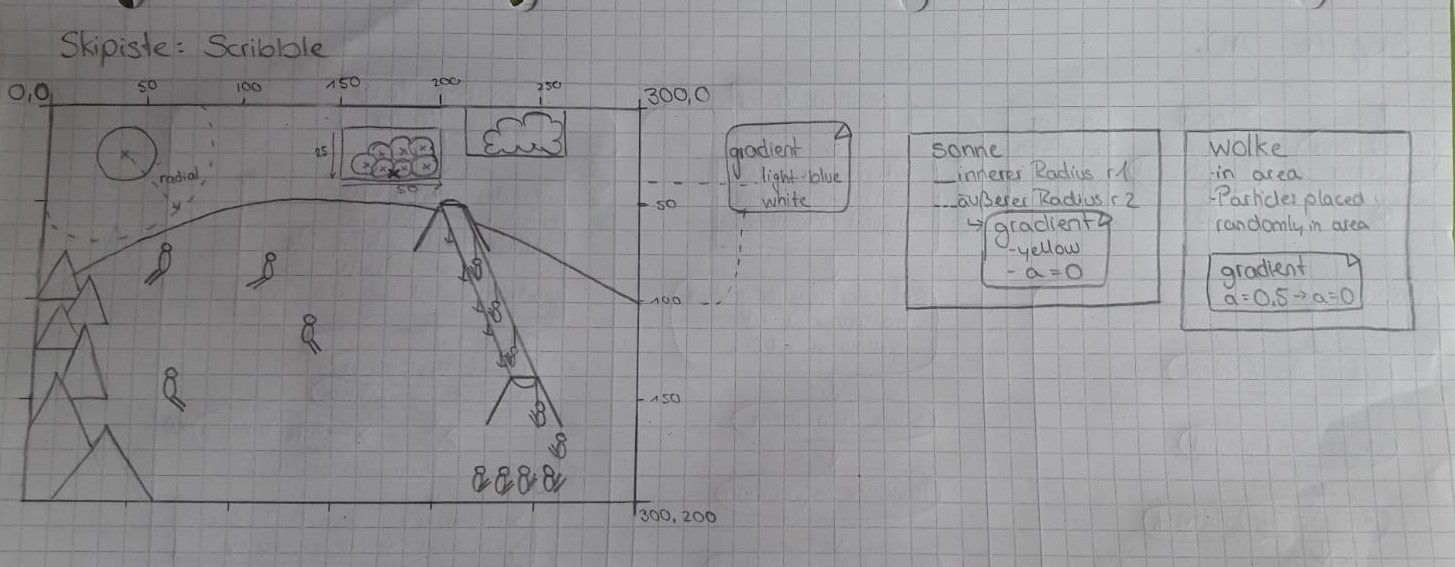 Skipiste: Scribble
0,0
50
100
150
200
250
300,0
25
50
radial
50
100
150
300, 200
gradient
light-blue
white
sonne
innerer Radius r1
äußerer Radius r2
gradient
-yellow
- a=0
wolke
-in area
-Particles placed
randomly in area
gradient
a=0,5→a=0